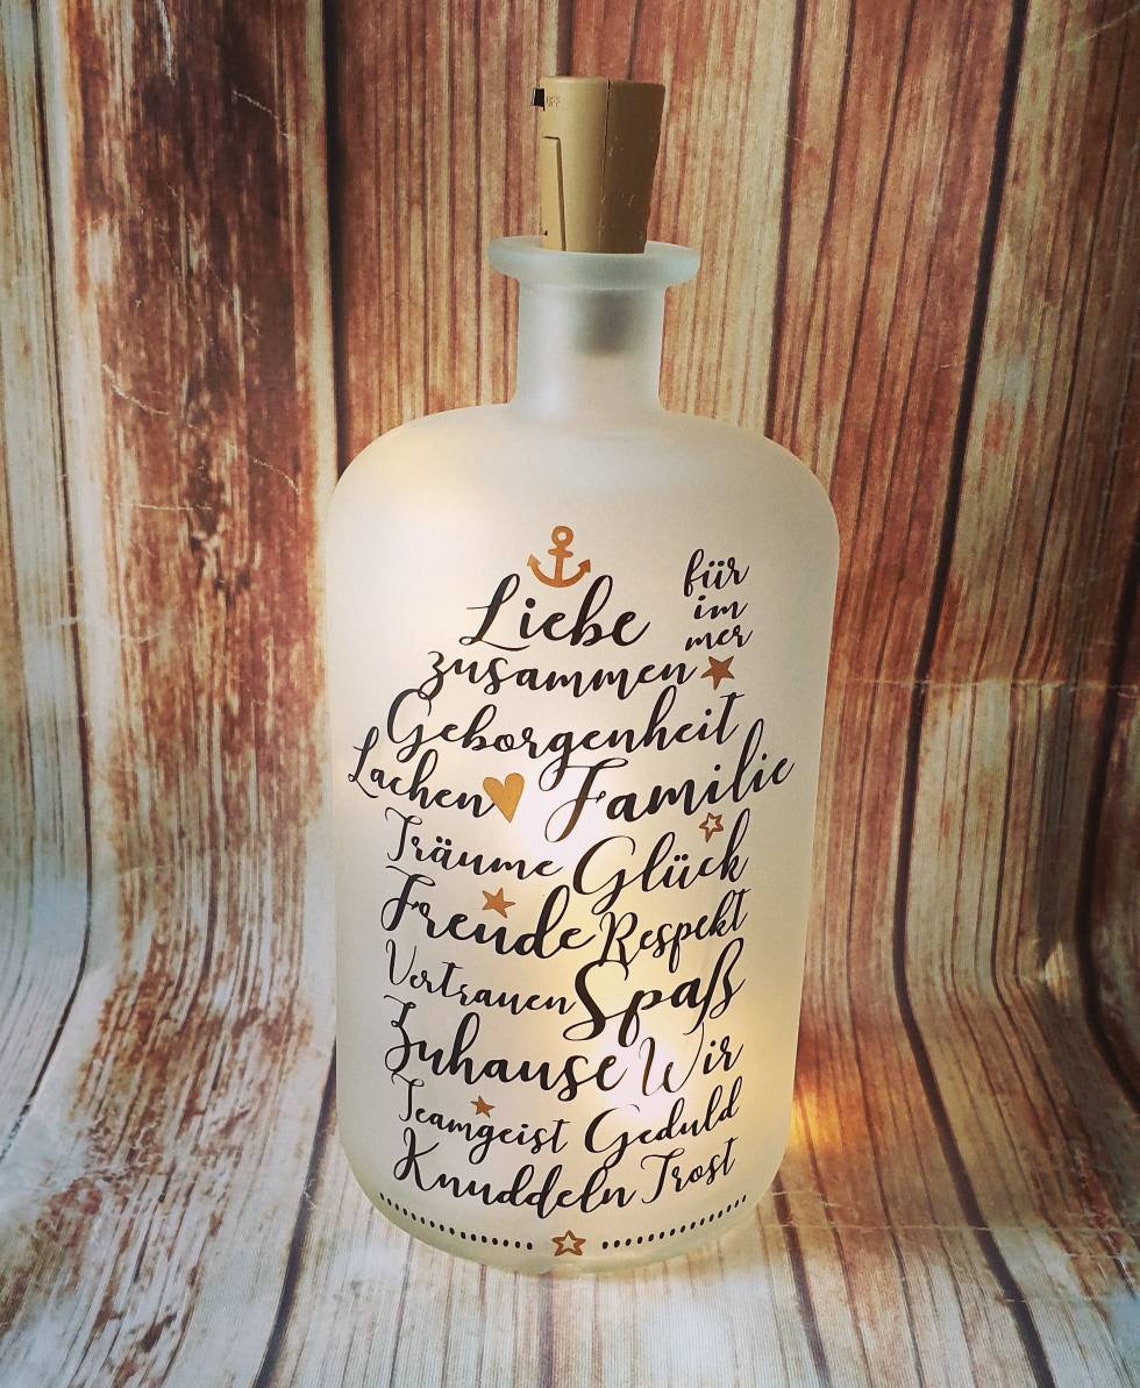 OFF
Liebe
für
im
mer
zusammen
Geborgenheit
Lachen Familie
Träume Glück
Freude Respekt
Vertrauen Spaß
Zuhause Wir
Teamgeist Geduld
Knuddeln Trost